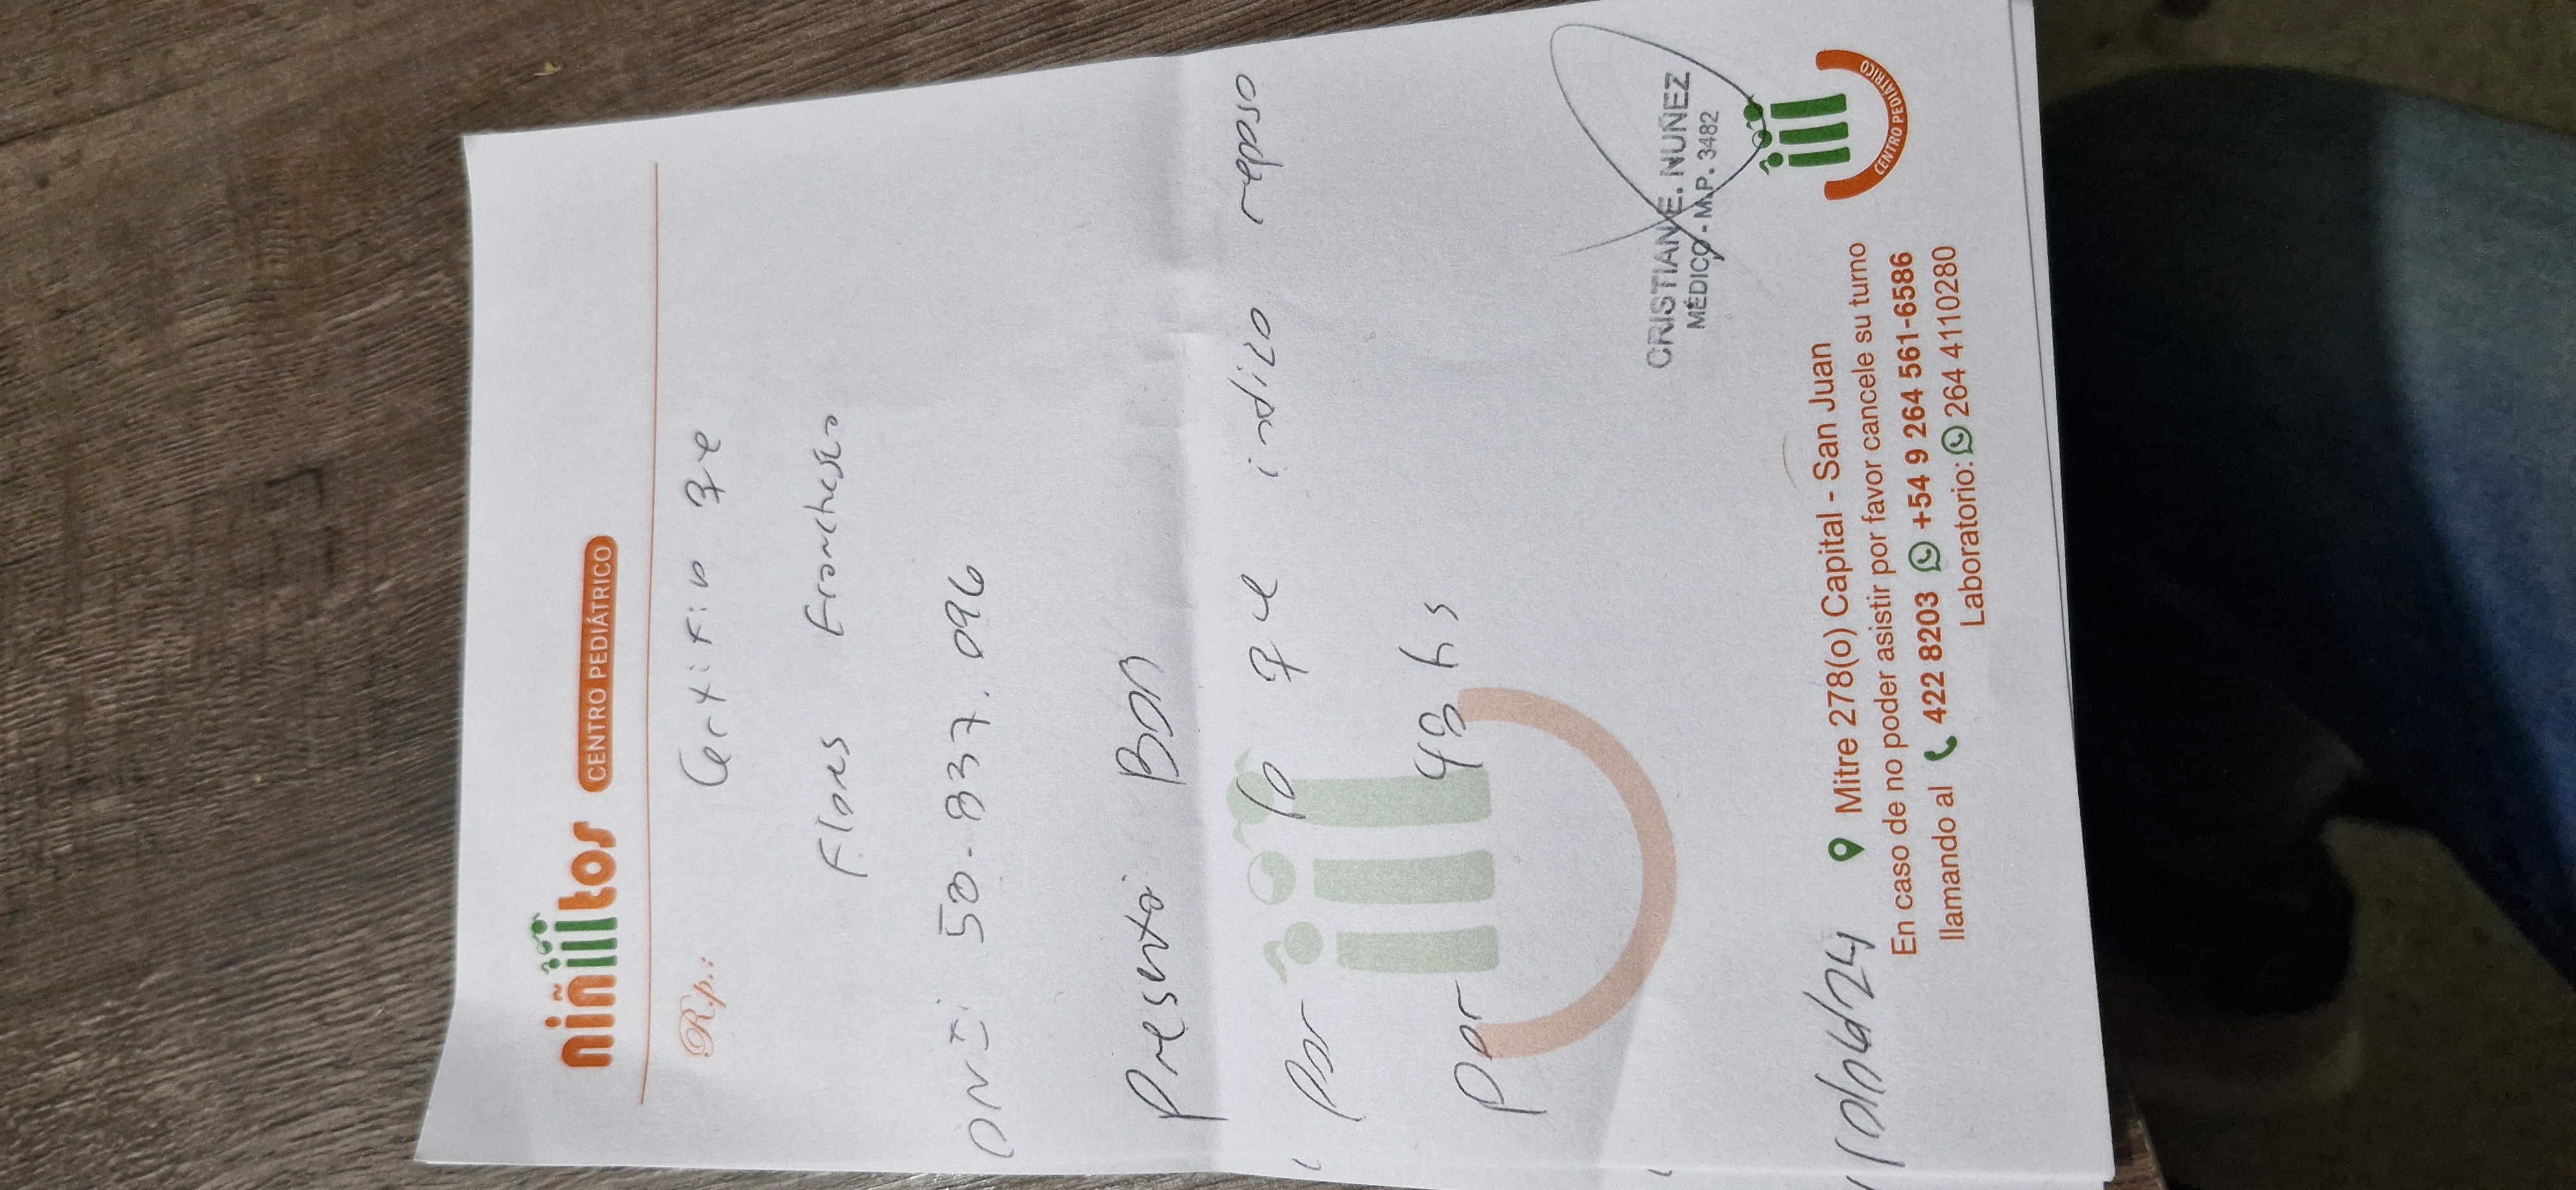 niñiiitos CENTRO PEDIÁTRICO
Rp.: Certifico que
Flores Franchesco
DNI: 50.837.096
Presentó BDN
Por lo que indico reposo
Por 48 hs
CRISTIAN E. NUÑEZ
MÉDICO - M.P. 3482
CENTRO PEDIÁTRICO
Mitre 278(o) Capital - San Juan
En caso de no poder asistir por favor cancele su turno
llamando al 422 8203 +54 9 264 561-6586
Laboratorio: 264 4110280